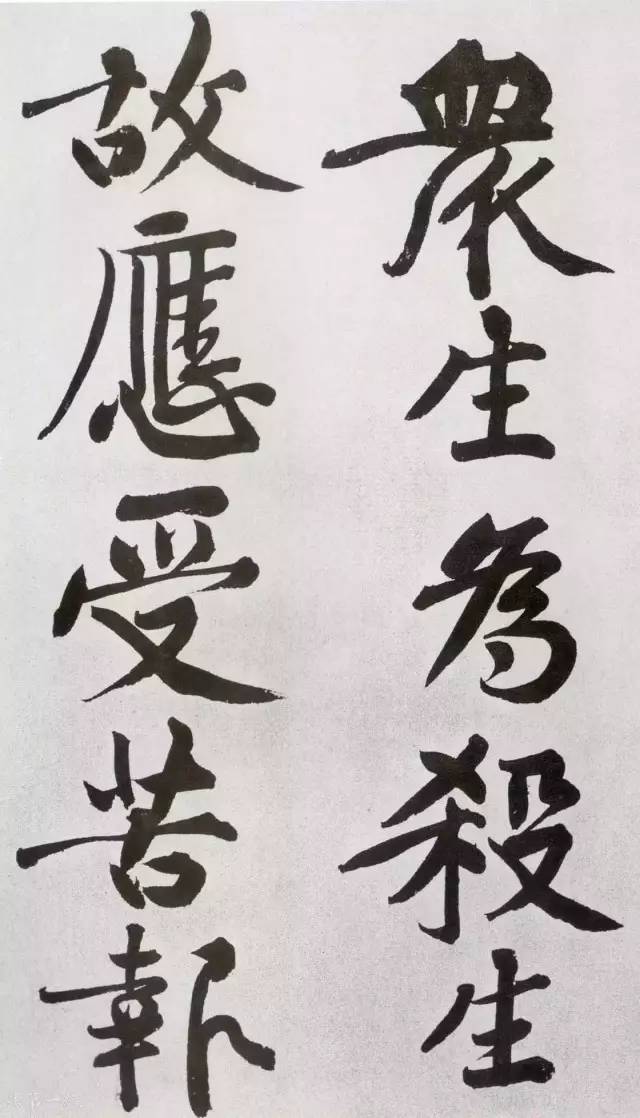 衆生為殺生
故應受苦報